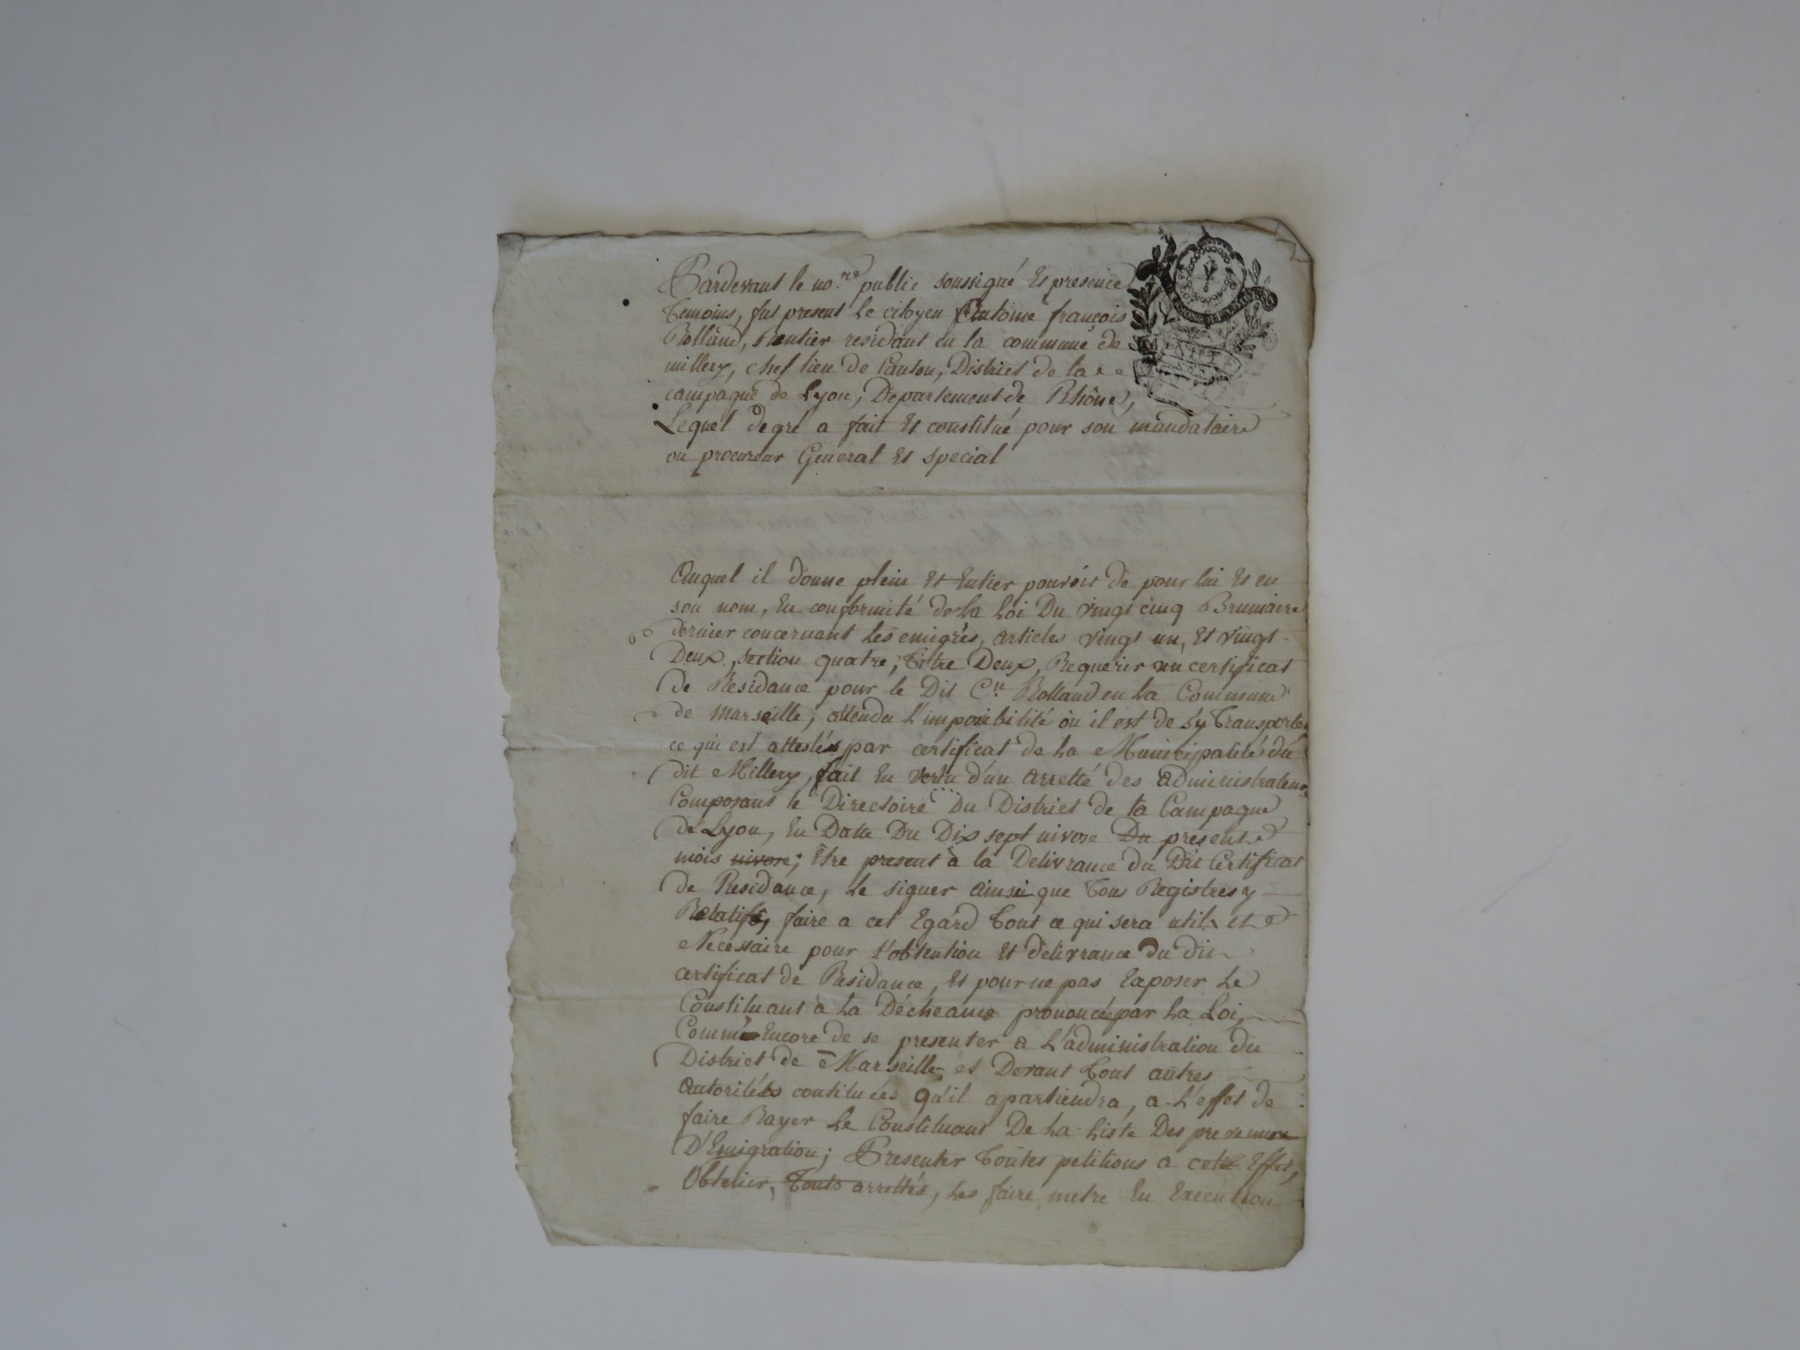 Pardevant le no.re public soussigné Et presence
Temoins, fut present Le citoyen Antoine françois
Rolland, Rentier residant en la commune de
millery, chef lieu de Canton, District de la
campagne de Lyon, Departement de Rhône,
Lequel de gré a fait Et constitué pour son mandataire
ou procureur Général Et special
Auquel il donne plein Et Entier pouvoir de pour lui Et en
son nom, En conformité de la Loi Du vingt cinq Brumaire
dernier concernant Les emigrés, articles vingt un, Et vingt
Deux, section quatre, Titre Deux, Requerir un certificat
de Residance pour le Dit C.n Rolland en La Commune
de Marseille; attendu L'impoibilité ou il est de s'y Transporter
ce qui est attestés par certificat de la Municipalité du
dit Millery, fait En vertu d'un arretté des administrateurs
Composans le Directoire Du District de la Campagne
de Lyon, En Date Du Dix sept nivose Du present
mois nivose; Etre present à la Delivrance du Dit Certificat
de Residance, Le signer ainsi que Tous Registres y
Relatifs, faire a cet Egard Tout ce qui sera utile et
Necessaire pour L'obtention Et délivrance du dit
certificat de Residance, Et pour ne pas Exposer Le
Constituant à La Décheance prononcée par La Loi,
Comme Encore de se presenter a L'administration du
District de Marseille et Devant Tout autres
autorités contituées qu'il apartiendra, a L'effet de
faire Rayer Le Constituant De La Liste Des prevenus
D'Emigration; Presenter Toutes petitions a cet Effet,
Obtenir, Touts arrettés, Les faire metre En Execution